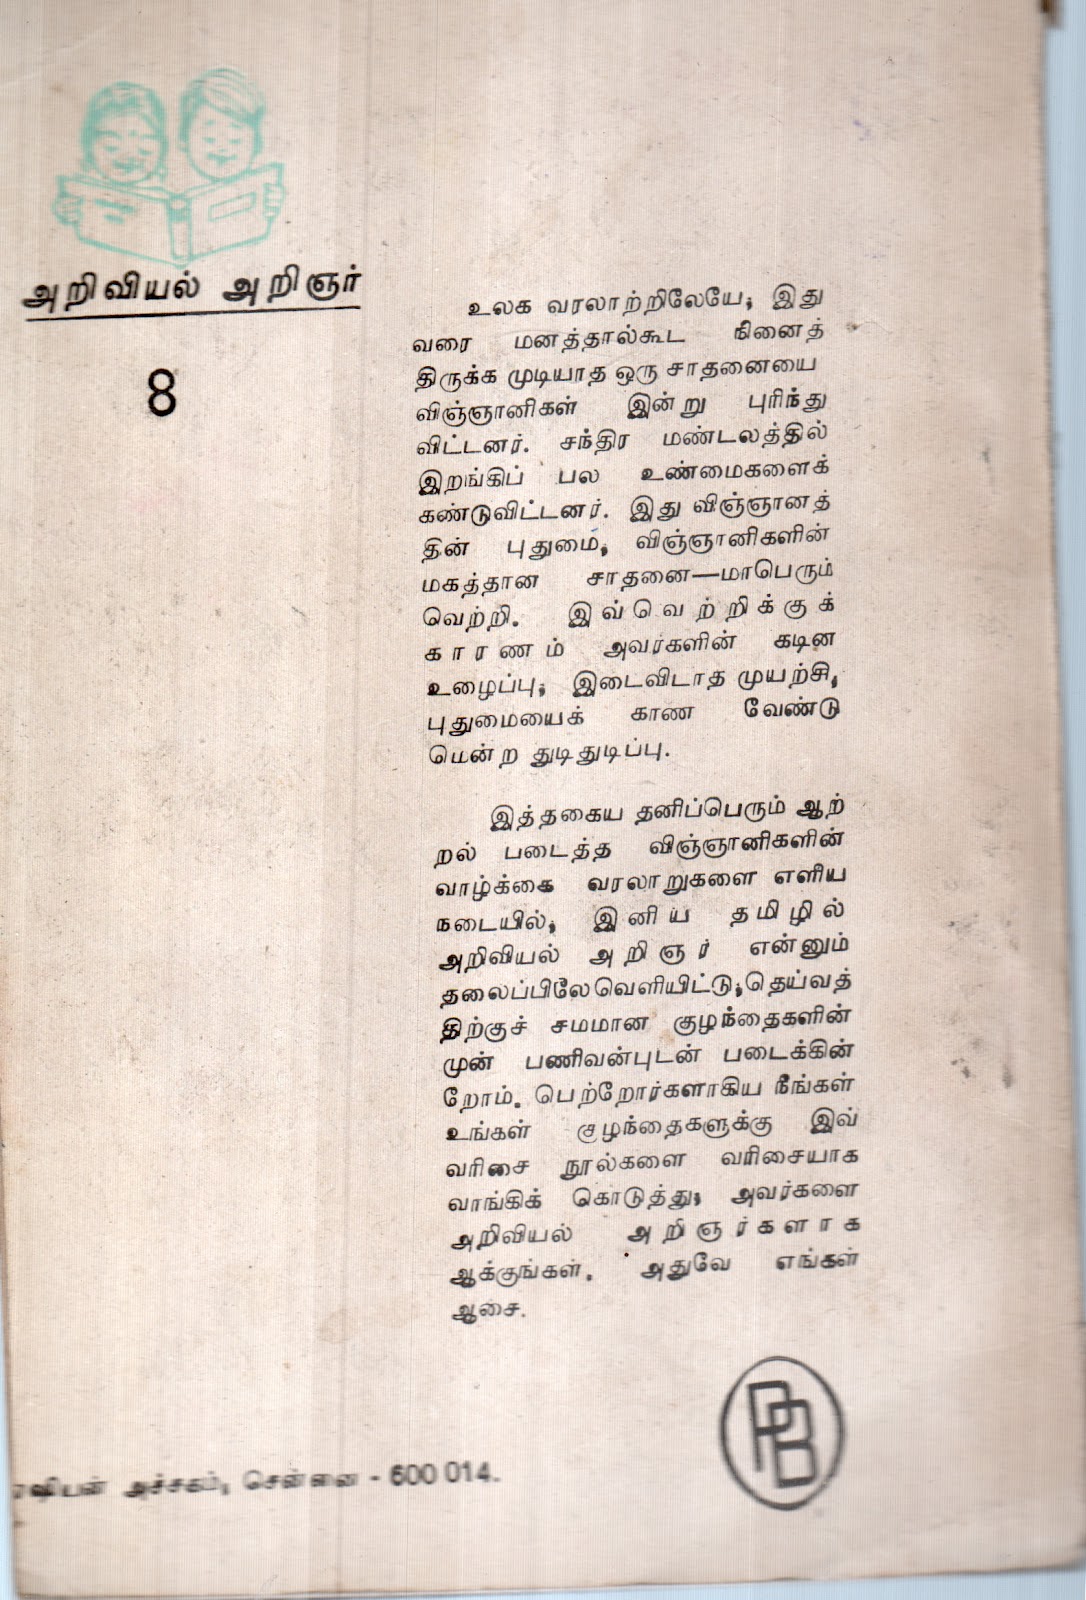 அறிவியல் அறிஞர்
8
உலக வரலாற்றிலேயே, இது
வரை மனத்தால்கூட நினைத்
திருக்க முடியாத ஒரு சாதனையை
விஞ்ஞானிகள் இன்று புரிந்து
விட்டனர். சந்திர மண்டலத்தில்
இறங்கிப் பல உண்மைகளைக்
கண்டுவிட்டனர். இது விஞ்ஞானத்
தின் புதுமை, விஞ்ஞானிகளின்
மகத்தான சாதனை—மாபெரும்
வெற்றி. இவ்வெற்றிக்குக்
காரணம் அவர்களின் கடின
உழைப்பு, இடைவிடாத முயற்சி,
புதுமையைக் காண வேண்டு
மென்ற துடிதுடிப்பு.
இத்தகைய தனிப்பெரும் ஆற்
றல் படைத்த விஞ்ஞானிகளின்
வாழ்க்கை வரலாறுகளை எளிய
நடையில், இனிய தமிழில்
அறிவியல் அறிஞர் என்னும்
தலைப்பிலேவெளியிட்டு,தெய்வத்
திற்குச் சமமான குழந்தைகளின்
முன் பணிவன்புடன் படைக்கின்
றோம். பெற்றோர்களாகிய நீங்கள்
உங்கள் குழந்தைகளுக்கு இவ்
வரிசை நூல்களை வரிசையாக
வாங்கிக் கொடுத்து, அவர்களை
அறிவியல் அறிஞர்களாக
ஆக்குங்கள். அதுவே எங்கள்
ஆசை.
PB
அச்சகம், சென்னை - 600 014.